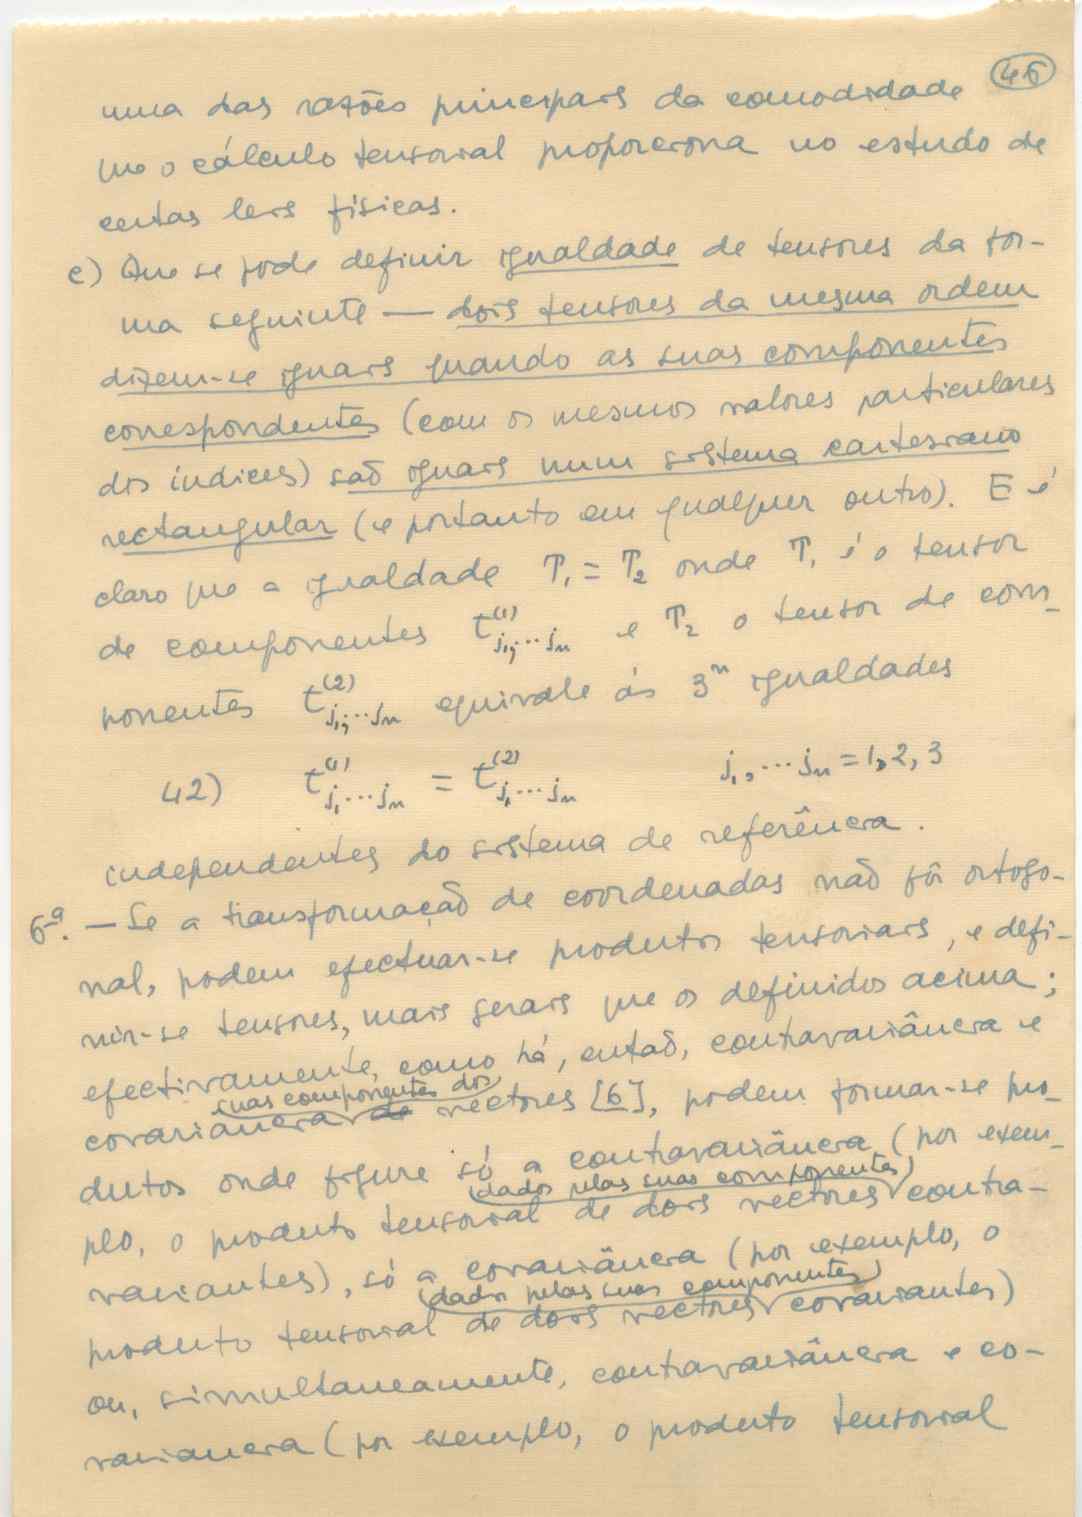 46
uma das razões principais da comodidade
que o cálculo tensorial proporciona no estudo de
certas leis físicas.
c) Que se pode definir igualdade de tensores da for-
ma seguinte — dois tensores da mesma ordem
dizem-se iguais quando as suas componentes
correspondentes (com os mesmos valores particulares
dos índices) são iguais num sistema cartesiano
rectangular (e portanto em qualquer outro). E é
claro que a igualdade T₁ = T₂ onde T₁ é o tensor
de componentes t⁽¹⁾_{j₁,...jₙ} e T₂ o tensor de com-
ponentes t⁽²⁾_{j₁,...jₙ} equivale às 3ⁿ igualdades
42) t⁽¹⁾_{j₁...jₙ} = t⁽²⁾_{j₁...jₙ} j₁,...jₙ = 1, 2, 3
independentes do sistema de referência.
6ª. — Se a transformação de coordenadas não fôr ortogo-
nal, podem efectuar-se produtos tensoriais, e defi-
nir-se tensores, mais gerais que os definidos acima;
efectivamente, como há, então, contravariância e
suas componentes dos
covariância de vectores [6], podem formar-se pro-
dutos onde figure só a contravariância (por exem-
(dados pelas suas componentes)
plo, o produto tensorial de dois vectores contra-
variantes), só a covariância (por exemplo, o
(dados pelas suas componentes)
produto tensorial de dois vectores covariantes)
ou, simultaneamente, contravariância e co-
variancia (por exemplo, o produto tensorial